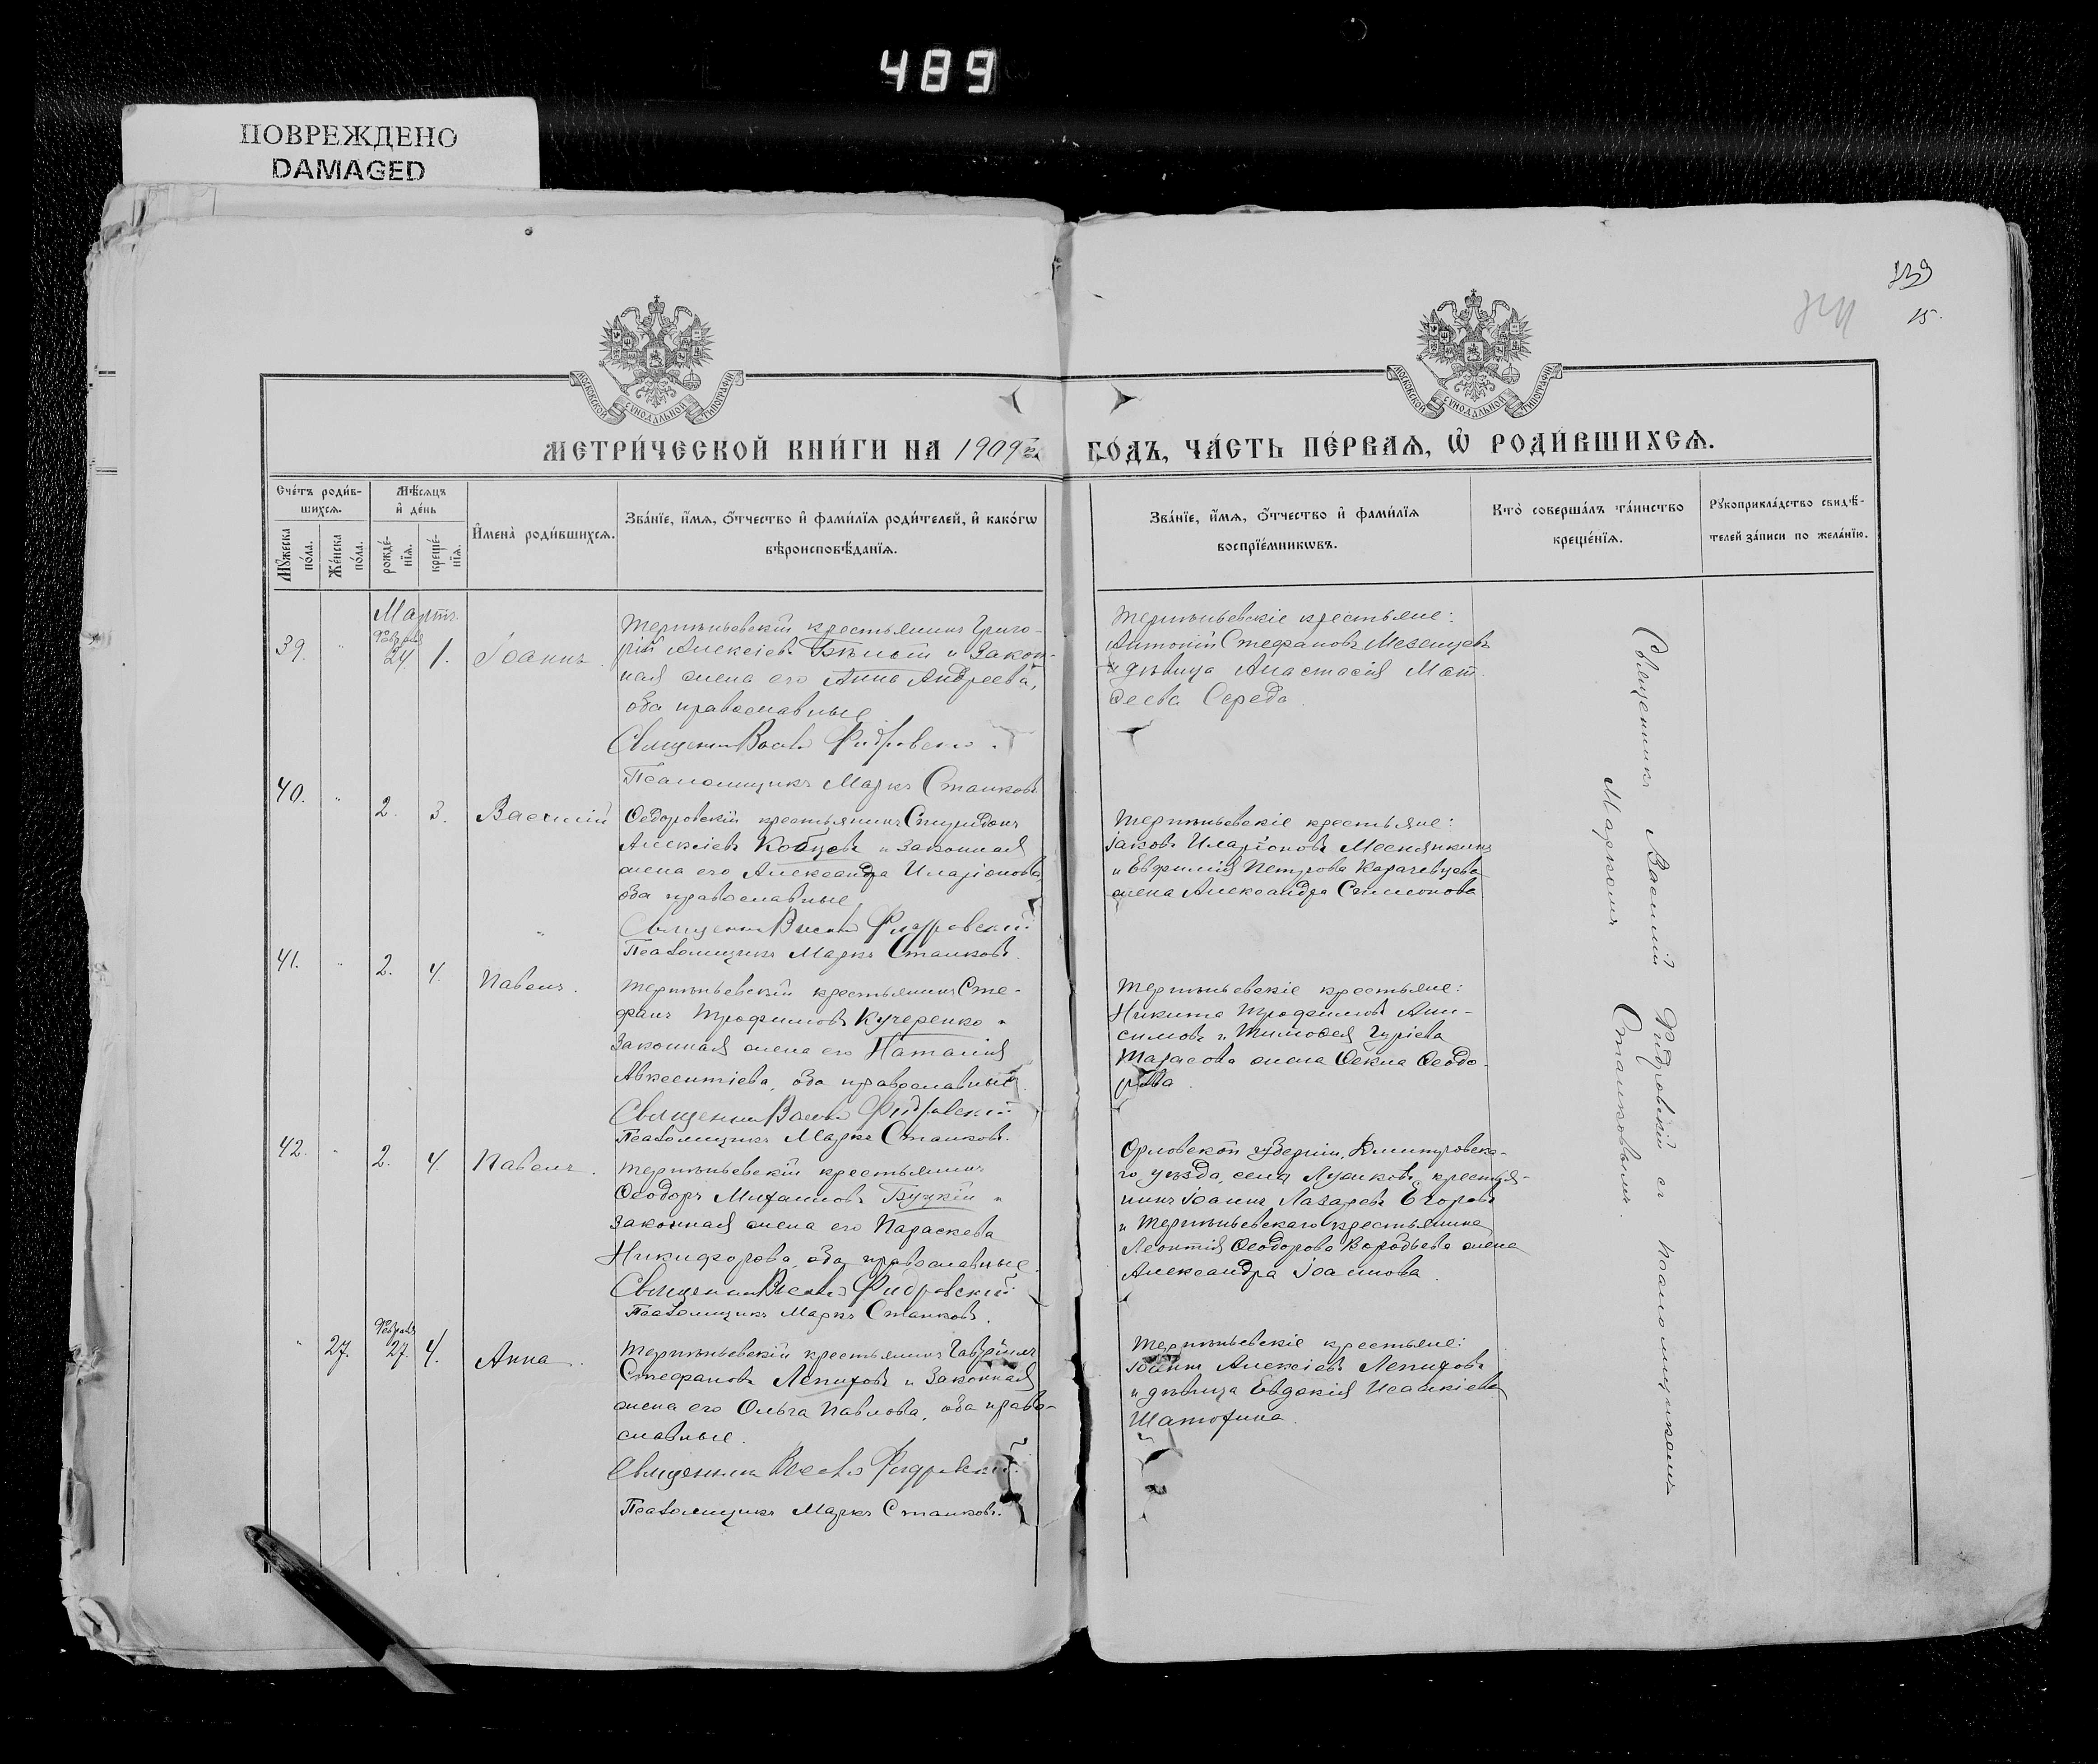 489
ПОВРЕЖДЕНО
DAMAGED
139
15.
МОСКОВСКОЙ СѴНОДАЛЬНОЙ ТИПОГРАФІИ
МОСКОВСКОЙ СѴНОДАЛЬНОЙ ТИПОГРАФІИ
МЕТРИ́ЧЕСКОЙ КНИ́ГИ НА 1909й ГО́ДЪ, ЧА́СТЬ ПЕ́РВАѦ, Ѡ҆ РОДИ́ВШИХСѦ.
Сче́тъ роди́в-
шихсѧ.
Мꙋ́жеска по́ла.
Же́нска по́ла.
Мѣ́сѧцъ
и҆ де́нь
рожде́-
нїѧ.
креще́-
нїѧ.
И҆мена̀ роди́вшихсѧ.
Зва́нїе, и҆́мѧ, ѻ҆́тчество и҆ фами́лїѧ роди́телей, и҆ како́гѡ
вѣроисповѣ́данїѧ.
Зва́нїе, и҆́мѧ, ѻ҆́тчество и҆ фами́лїѧ
воспрїе́мникѡвъ.
Кто̀ соверша́лъ та́инство
креще́нїѧ.
Рꙋкоприкла́дство свидѣ́-
телей за́писи по жела́нїю.
Мартъ
39. " Февраля 24 1. Іоаннъ.
Терпѣньевскій крестьянинъ Григо-
рій Алексіевъ Бѣлый и закон-
ная жена его Анна Андреева,
оба православные
Священникъ Василій Фидровскій.
Псаломщикъ Маркъ Станковъ
Терпѣньевскіе крестьяне:
Антоній Стефановъ Мезенцевъ
и дѣвица Анастасія Мат-
ѳеева Середа.
40. " 2. 3. Василій
Ѳедоровскій крестьянинъ Спиридонъ
Алексіевъ Кобцевъ и законная
жена его Александра Иларіонова,
оба православные
Священникъ Василій Фидровскій
Псаломщикъ Маркъ Станковъ.
Терпѣньевскіе крестьяне:
Іаковъ Иларіоновъ
и Евфимія Петрова Карачевцева
жена Александра Симеонова
41. " 2. 4. Павелъ.
Терпѣньевскій крестьянинъ Сте-
фанъ Трофимовъ Кучеренко и
законная жена его Наталія
Авксентіева, оба православные.
Священникъ Василій Фидровскій
Псаломщикъ Маркъ Станковъ.
Терпѣньевскіе крестьяне:
Никита Трофимовъ Ани-
симовъ и Тимоѳея Гуріева
Тарасова жена Ѳекла Ѳеодо-
рова.
42. " 2. 4. Павелъ.
Терпѣньевскій крестьянинъ
Ѳеодоръ Михаиловъ Буцкій и
законная жена его Параскева
Никифорова, оба православные.
Священникъ Василій Фидровскій
Псаломщикъ Маркъ Станковъ.
Орловской губерніи, Дмитровска-
го уѣзда, села крестья-
нинъ Іоаннъ Лазаревъ Егоровъ
и Терпѣньевскаго крестьянина
Леонтія Ѳеодорова Воробьева жена
Александра Іоаннова.
" 27. Февраля 27. 4. Анна.
Терпѣньевскій крестьянинъ Гавріилъ
Стефановъ Лепиховъ и законная
жена его Ольга Павлова, оба право-
славные.
Священникъ Василій Фидровскій.
Псаломщикъ Маркъ Станковъ.
Терпѣньевскіе крестьяне:
Іоаннъ Алексіевъ Лепиховъ
и дѣвица Евдокія Исаакіева
Шатохина.
Священникъ Василій Фидровскій съ псаломщикомъ
Маркомъ Станковымъ.